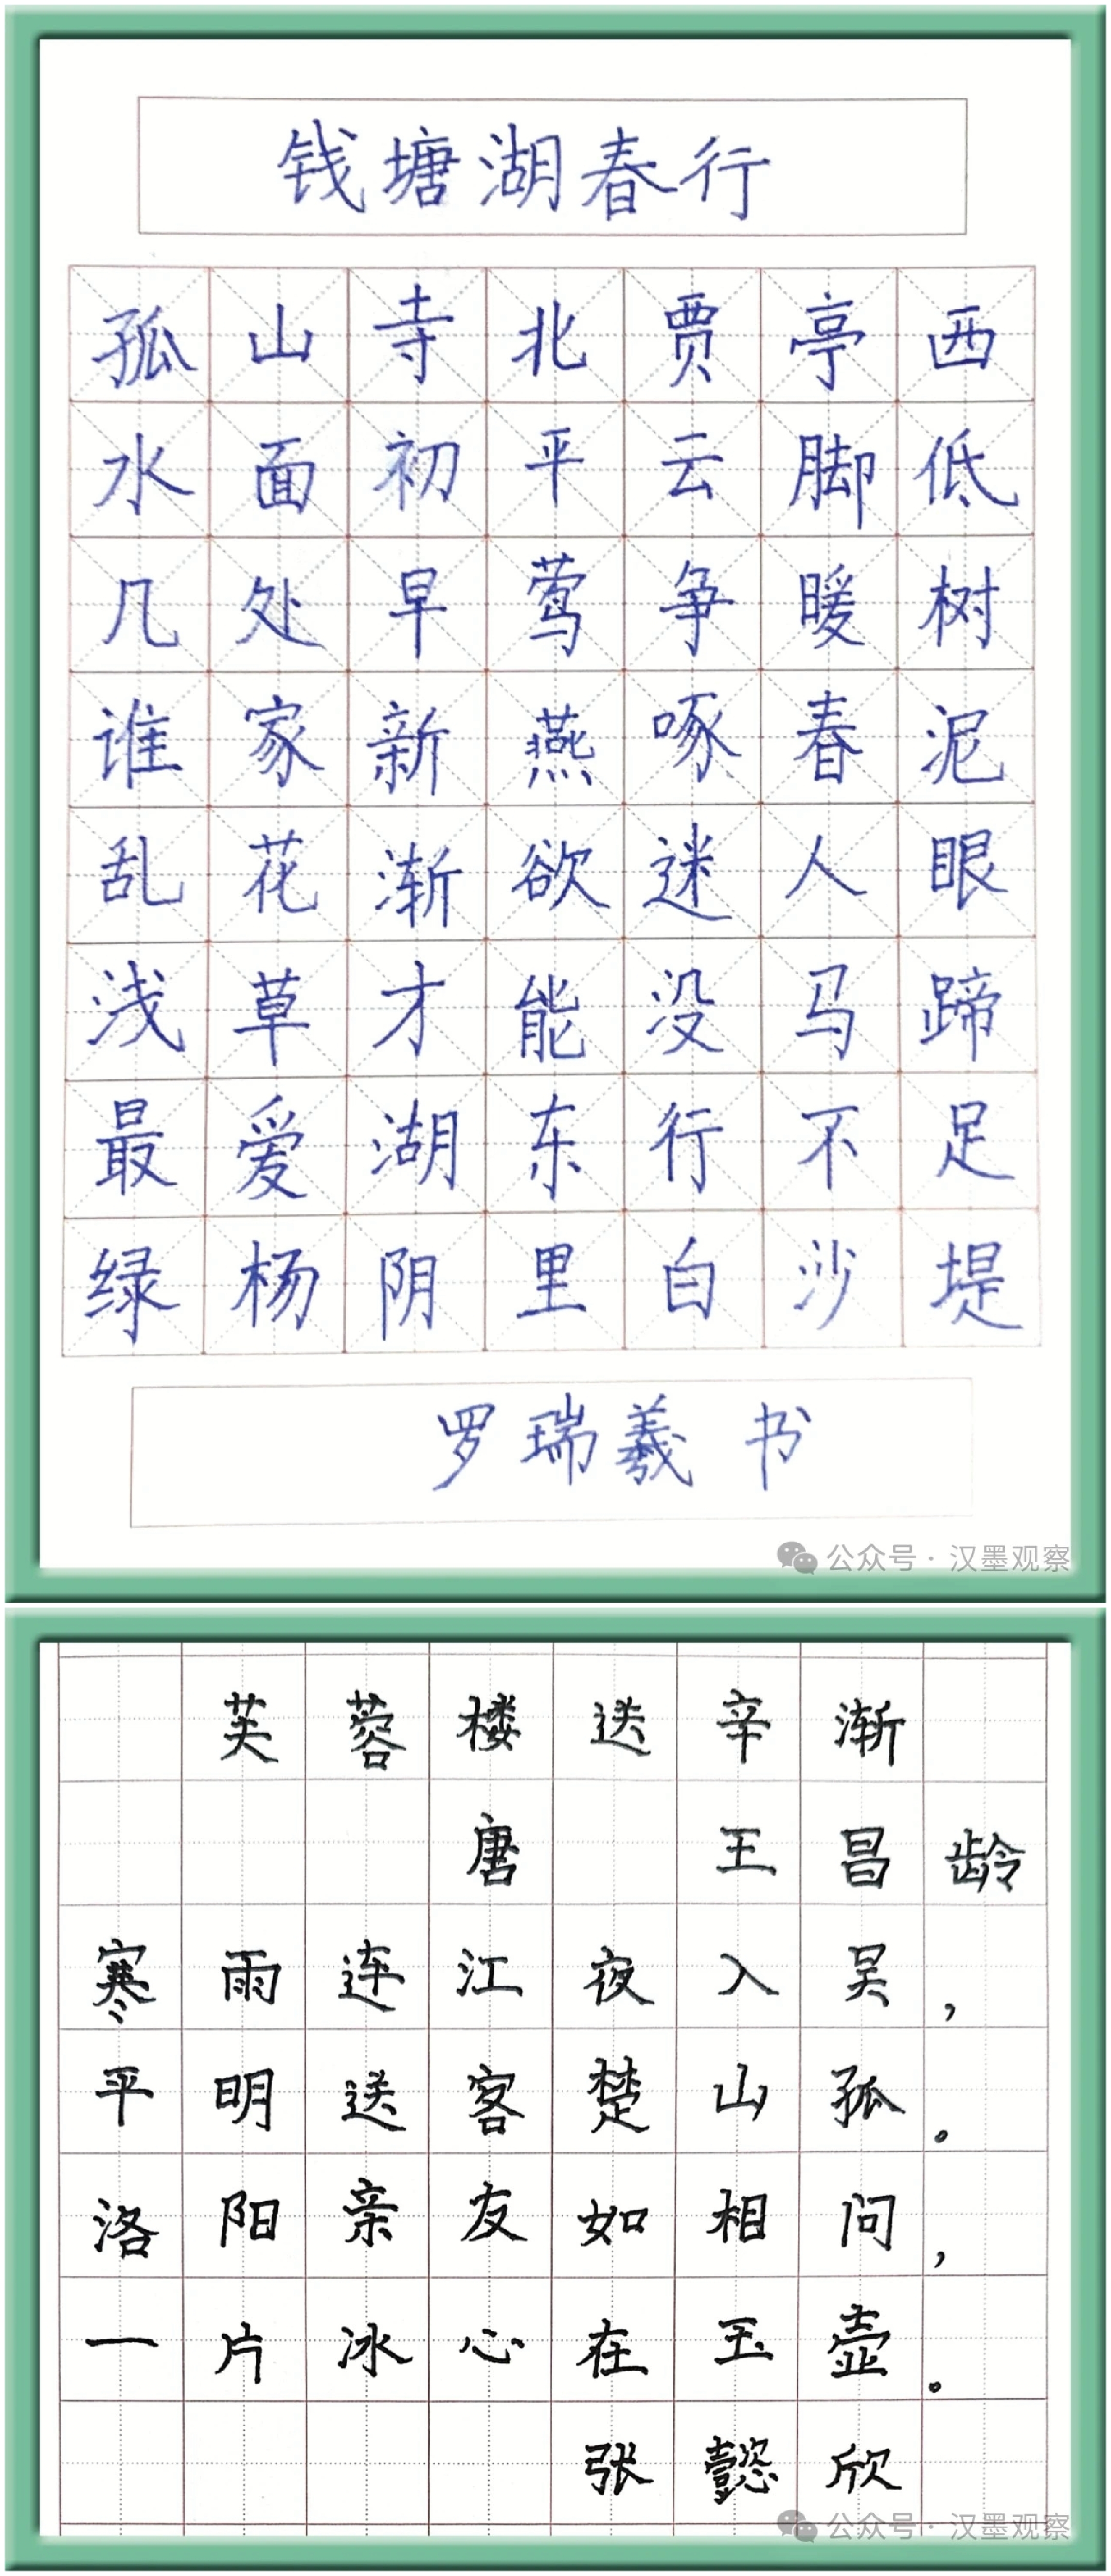 钱塘湖春行
孤山寺北贾亭西
水面初平云脚低
几处早莺争暖树
谁家新燕啄春泥
乱花渐欲迷人眼
浅草才能没马蹄
最爱湖东行不足
绿杨阴里白沙堤
罗瑞羲 书
公众号·汉墨观察
芙蓉楼送辛渐
唐 王昌龄
寒雨连江夜入吴，
平明送客楚山孤。
洛阳亲友如相问，
一片冰心在玉壶。
张懿欣
公众号·汉墨观察